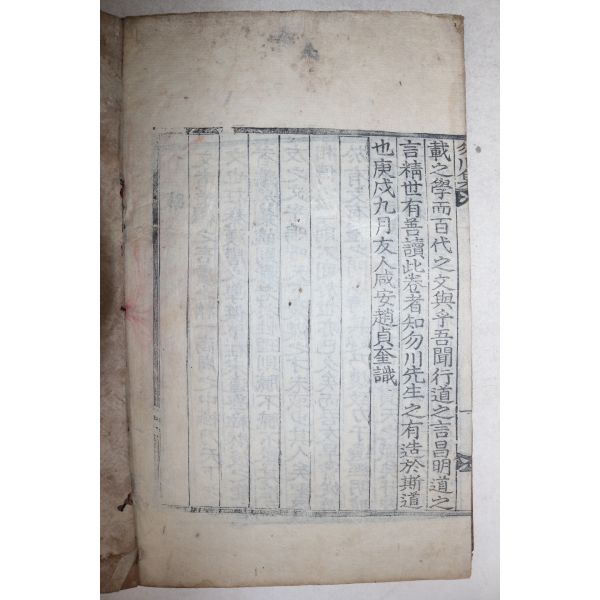 載之學而百代之文與乎吾聞行道之言昌明道之
言精世有善讀此卷者知勿川先生之有造於斯道
也庚戌九月友人咸安趙貞奎識